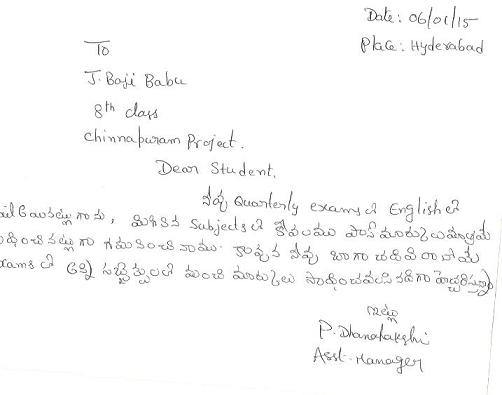 Date: 06/01/15
Place: Hyderabad
To
J. Baji Babu
8th class
Chinnapuram Project.
Dear Student,
నీవు Quarterly exams లో English లో
fail అయినట్లు గాను, మిగిలిన Subjects లో కేవలము పాస్ మార్కులు మాత్రమే
గా గమనించినాము. కావున నీవు బాగా చదివి రాబోయే
exams లో అన్ని సబ్జెక్టులలో మంచి మార్కులు సాధించవలసినదిగా హెచ్చరిస్తున్నాము
ఇట్లు
P. Dhanalakshi
Asst. Manager